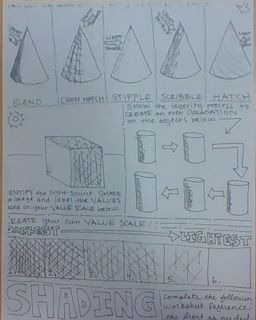 BLEND
CROSS HATCH
STIPPLE
SCRIBBLE
HATCH
SHOW the layering process to
CREATE an even GRADATION
on the objects below
IDENTIFY the light source. SHADE
image and label the VALUES
on your VALUE SCALE below.
CREATE your own VALUE SCALE!
DARKEST
LIGHTEST
4.
5.
6.
SHADING
Complete the following
worksheet. Reference
the front as needed